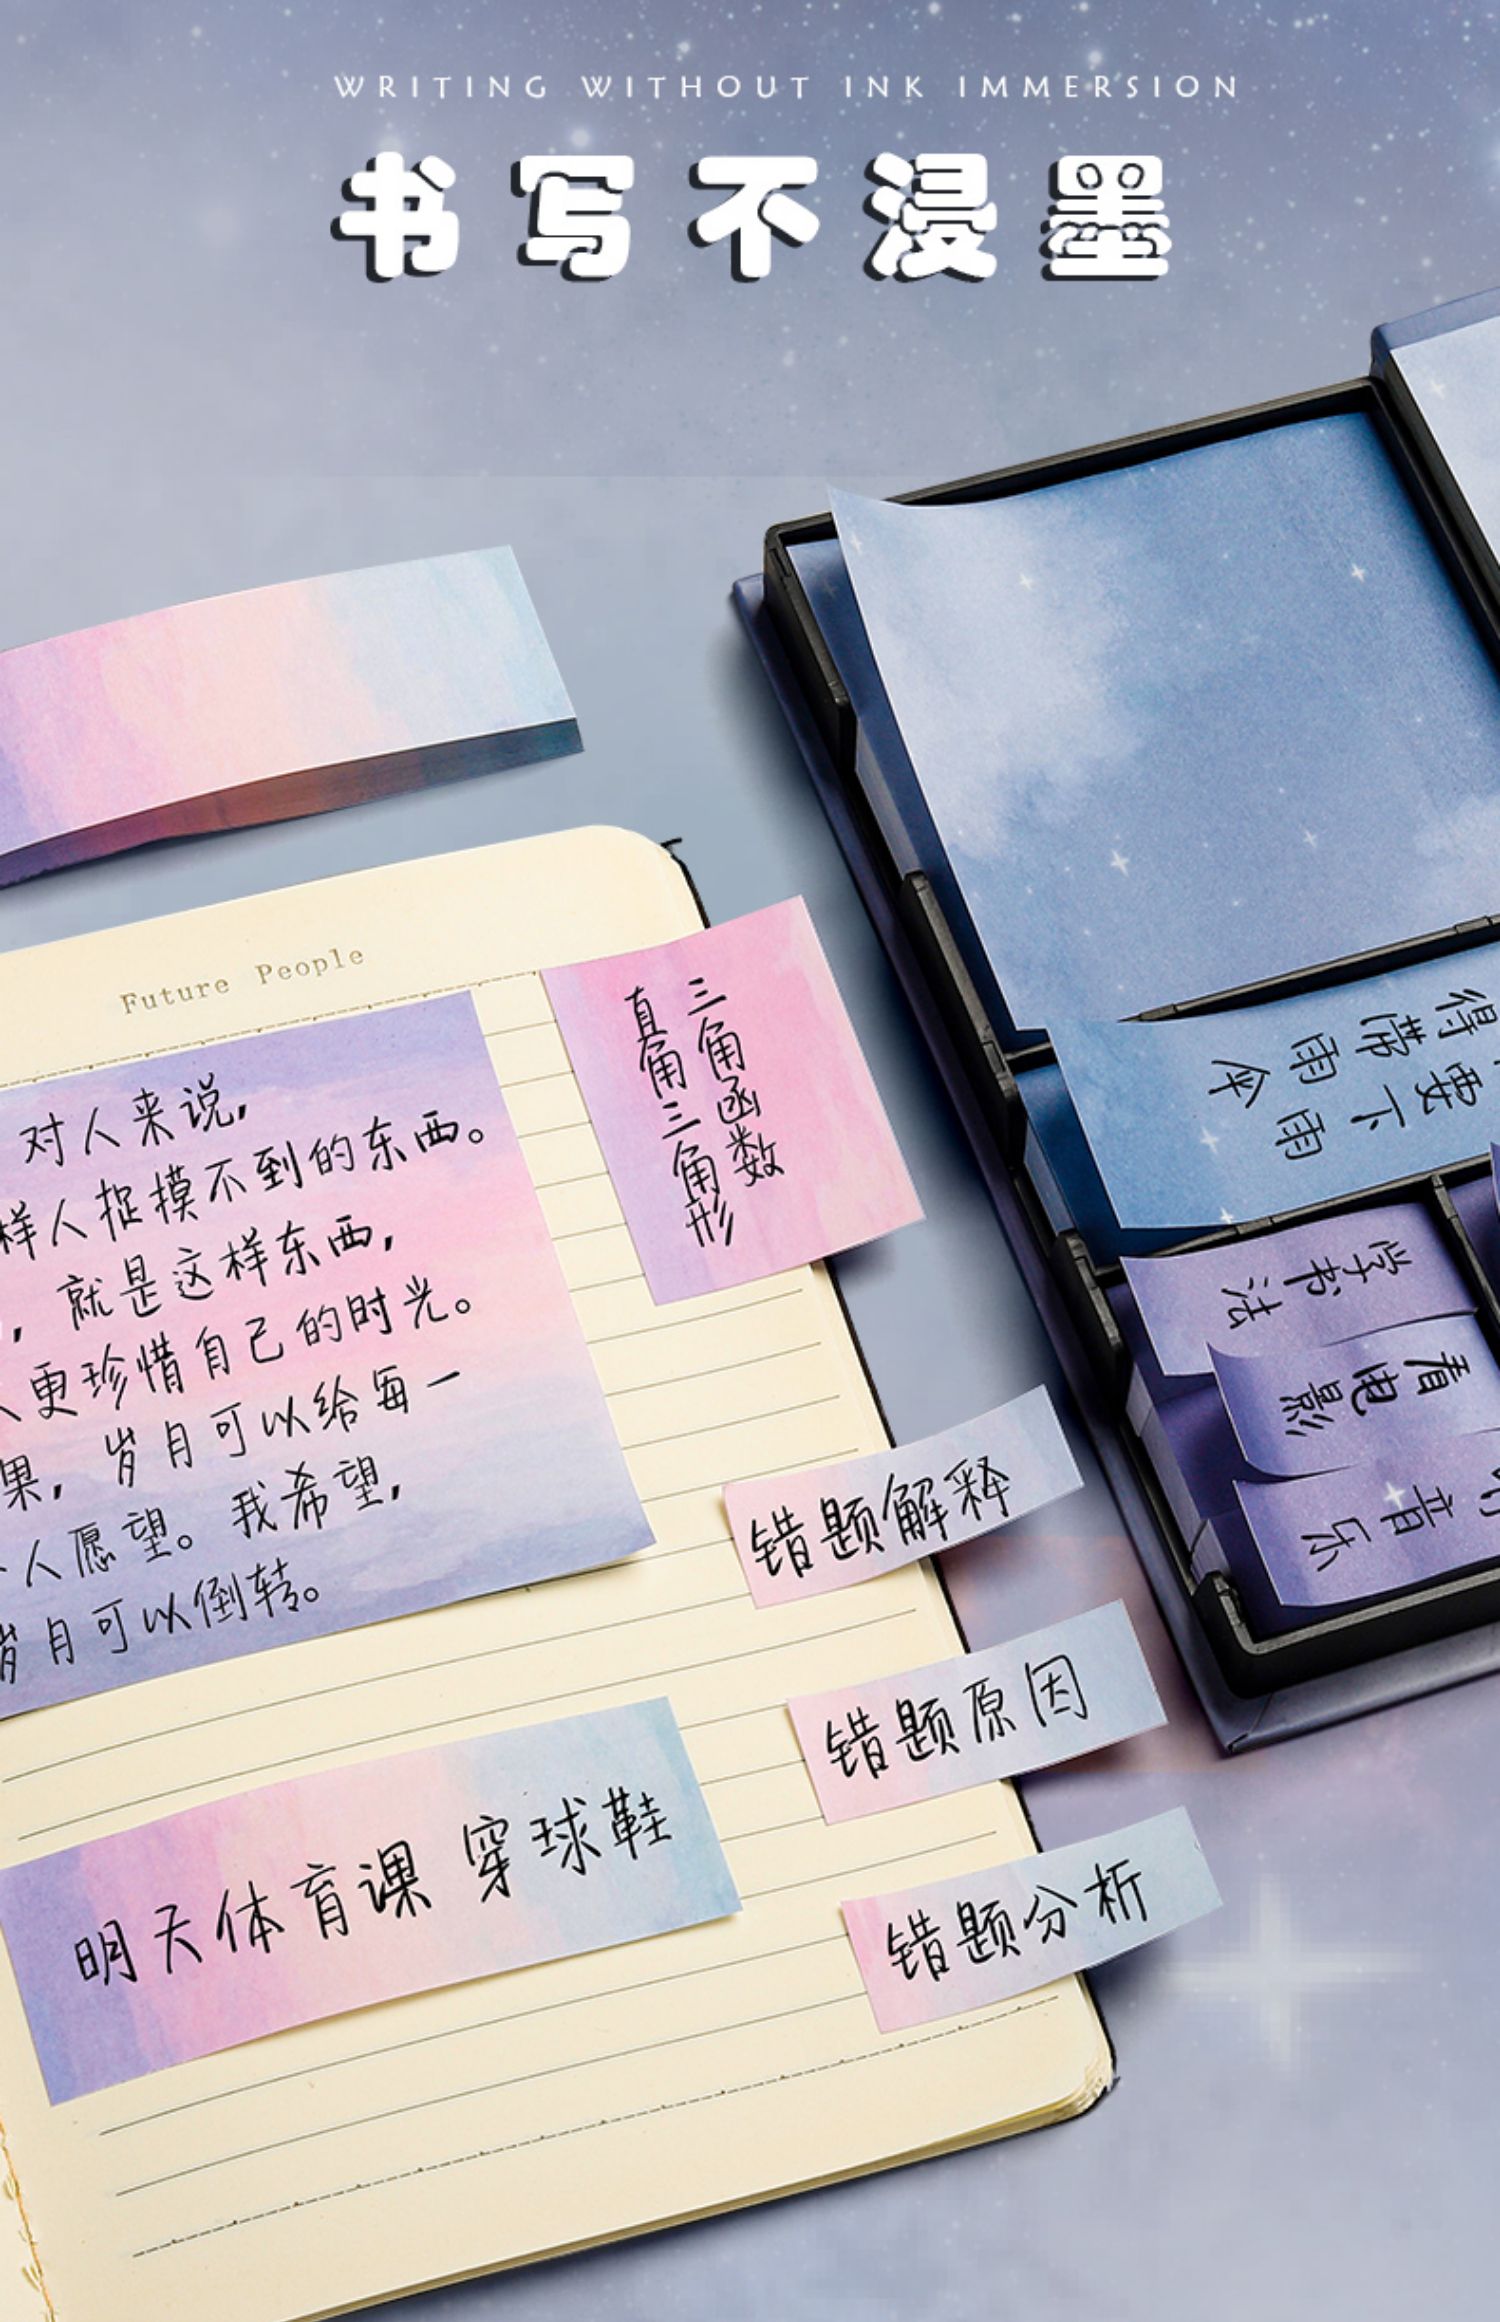 WRITING WITHOUT INK IMMERSION
书写不浸墨
Future People
对人来说,
样人捉摸不到的东西。
, 就是这样东西,
更珍惜自己的时光。
果, 岁月可以给每一
人愿望。我希望,
岁月可以倒转。
三角函数
直角三角形
错题解释
错题原因
错题分析
明天体育课 穿球鞋
要下雨
得带雨伞
学书法
看电影
音乐